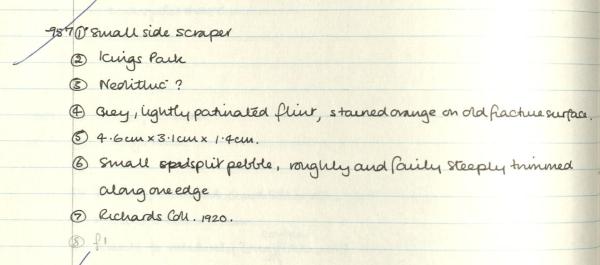 -987 ① Small side scraper
② Kings Park
③ Neolithic ?
④ Grey, lightly patinated flint, stained orange on old fracture surface.
⑤ 4.6cm x 3.1cm x 1.4cm.
⑥ Small split pebble, roughly and fairly steeply trimmed
along one edge
⑦ Richards Coll. 1920.
⑧ f1